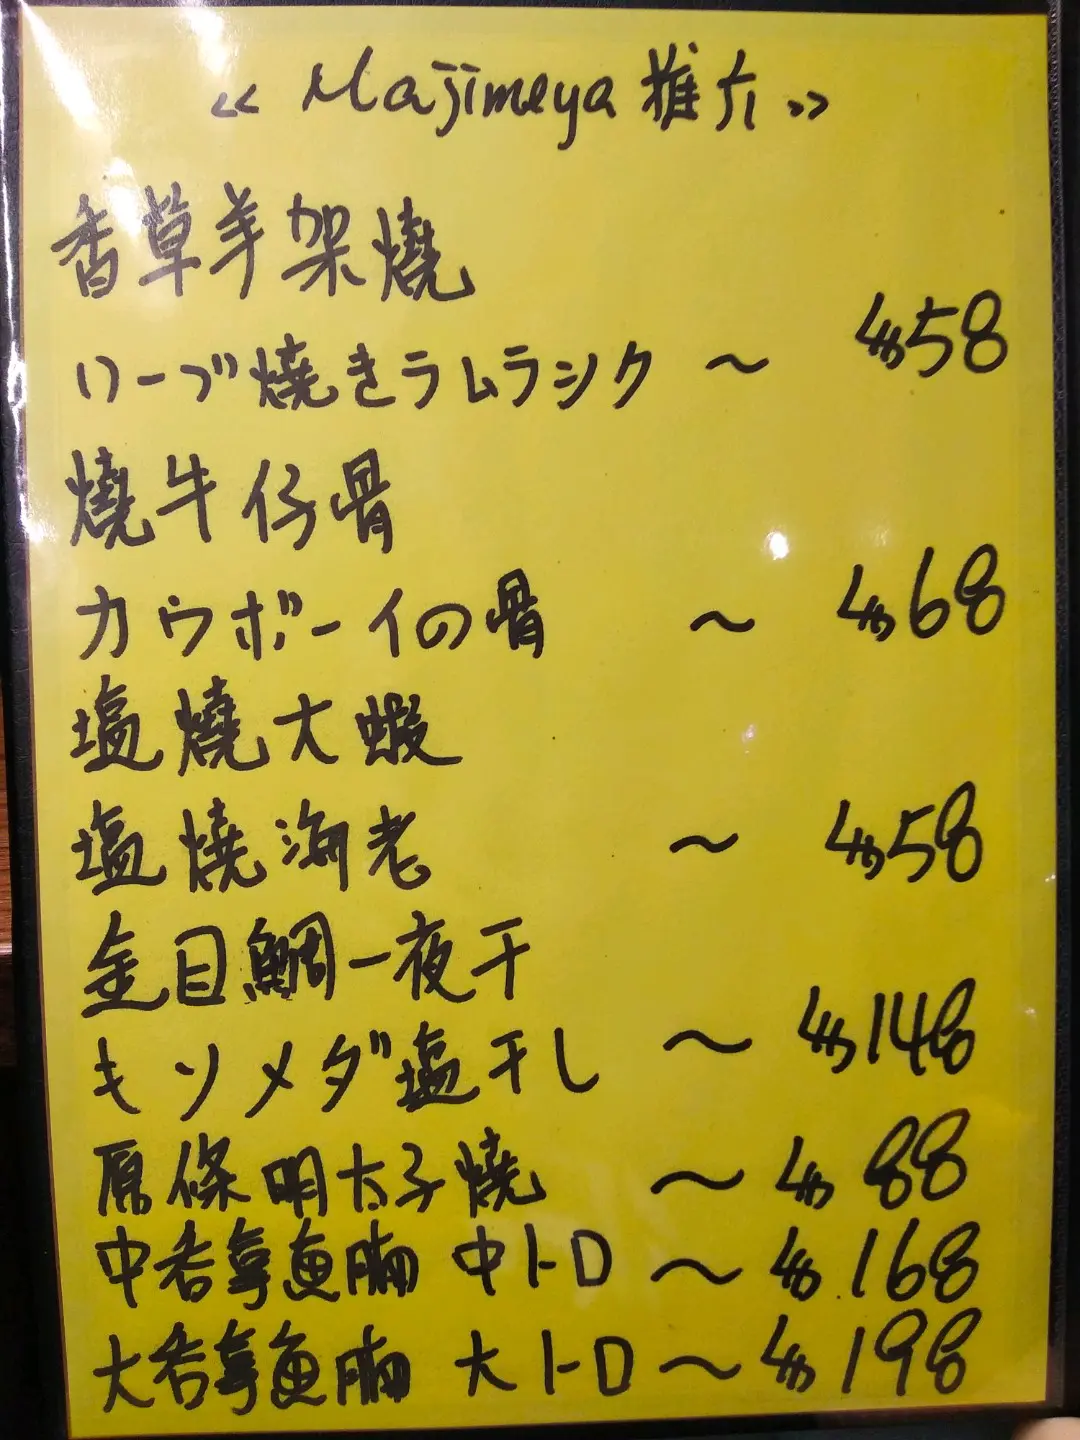 《 Majimeya 推介 》
香草羊架燒
ハーブ焼きラムラシク ～ $58
燒牛仔骨
カウボーイの骨 ～ $68
塩燒大蝦
塩焼海老 ～ $58
金目鯛一夜干
キソメダ塩干し ～ $148
原條明太子燒 ～ $88
中吞拿魚腩 中トロ ～ $168
大吞拿魚腩 大トロ ～ $198